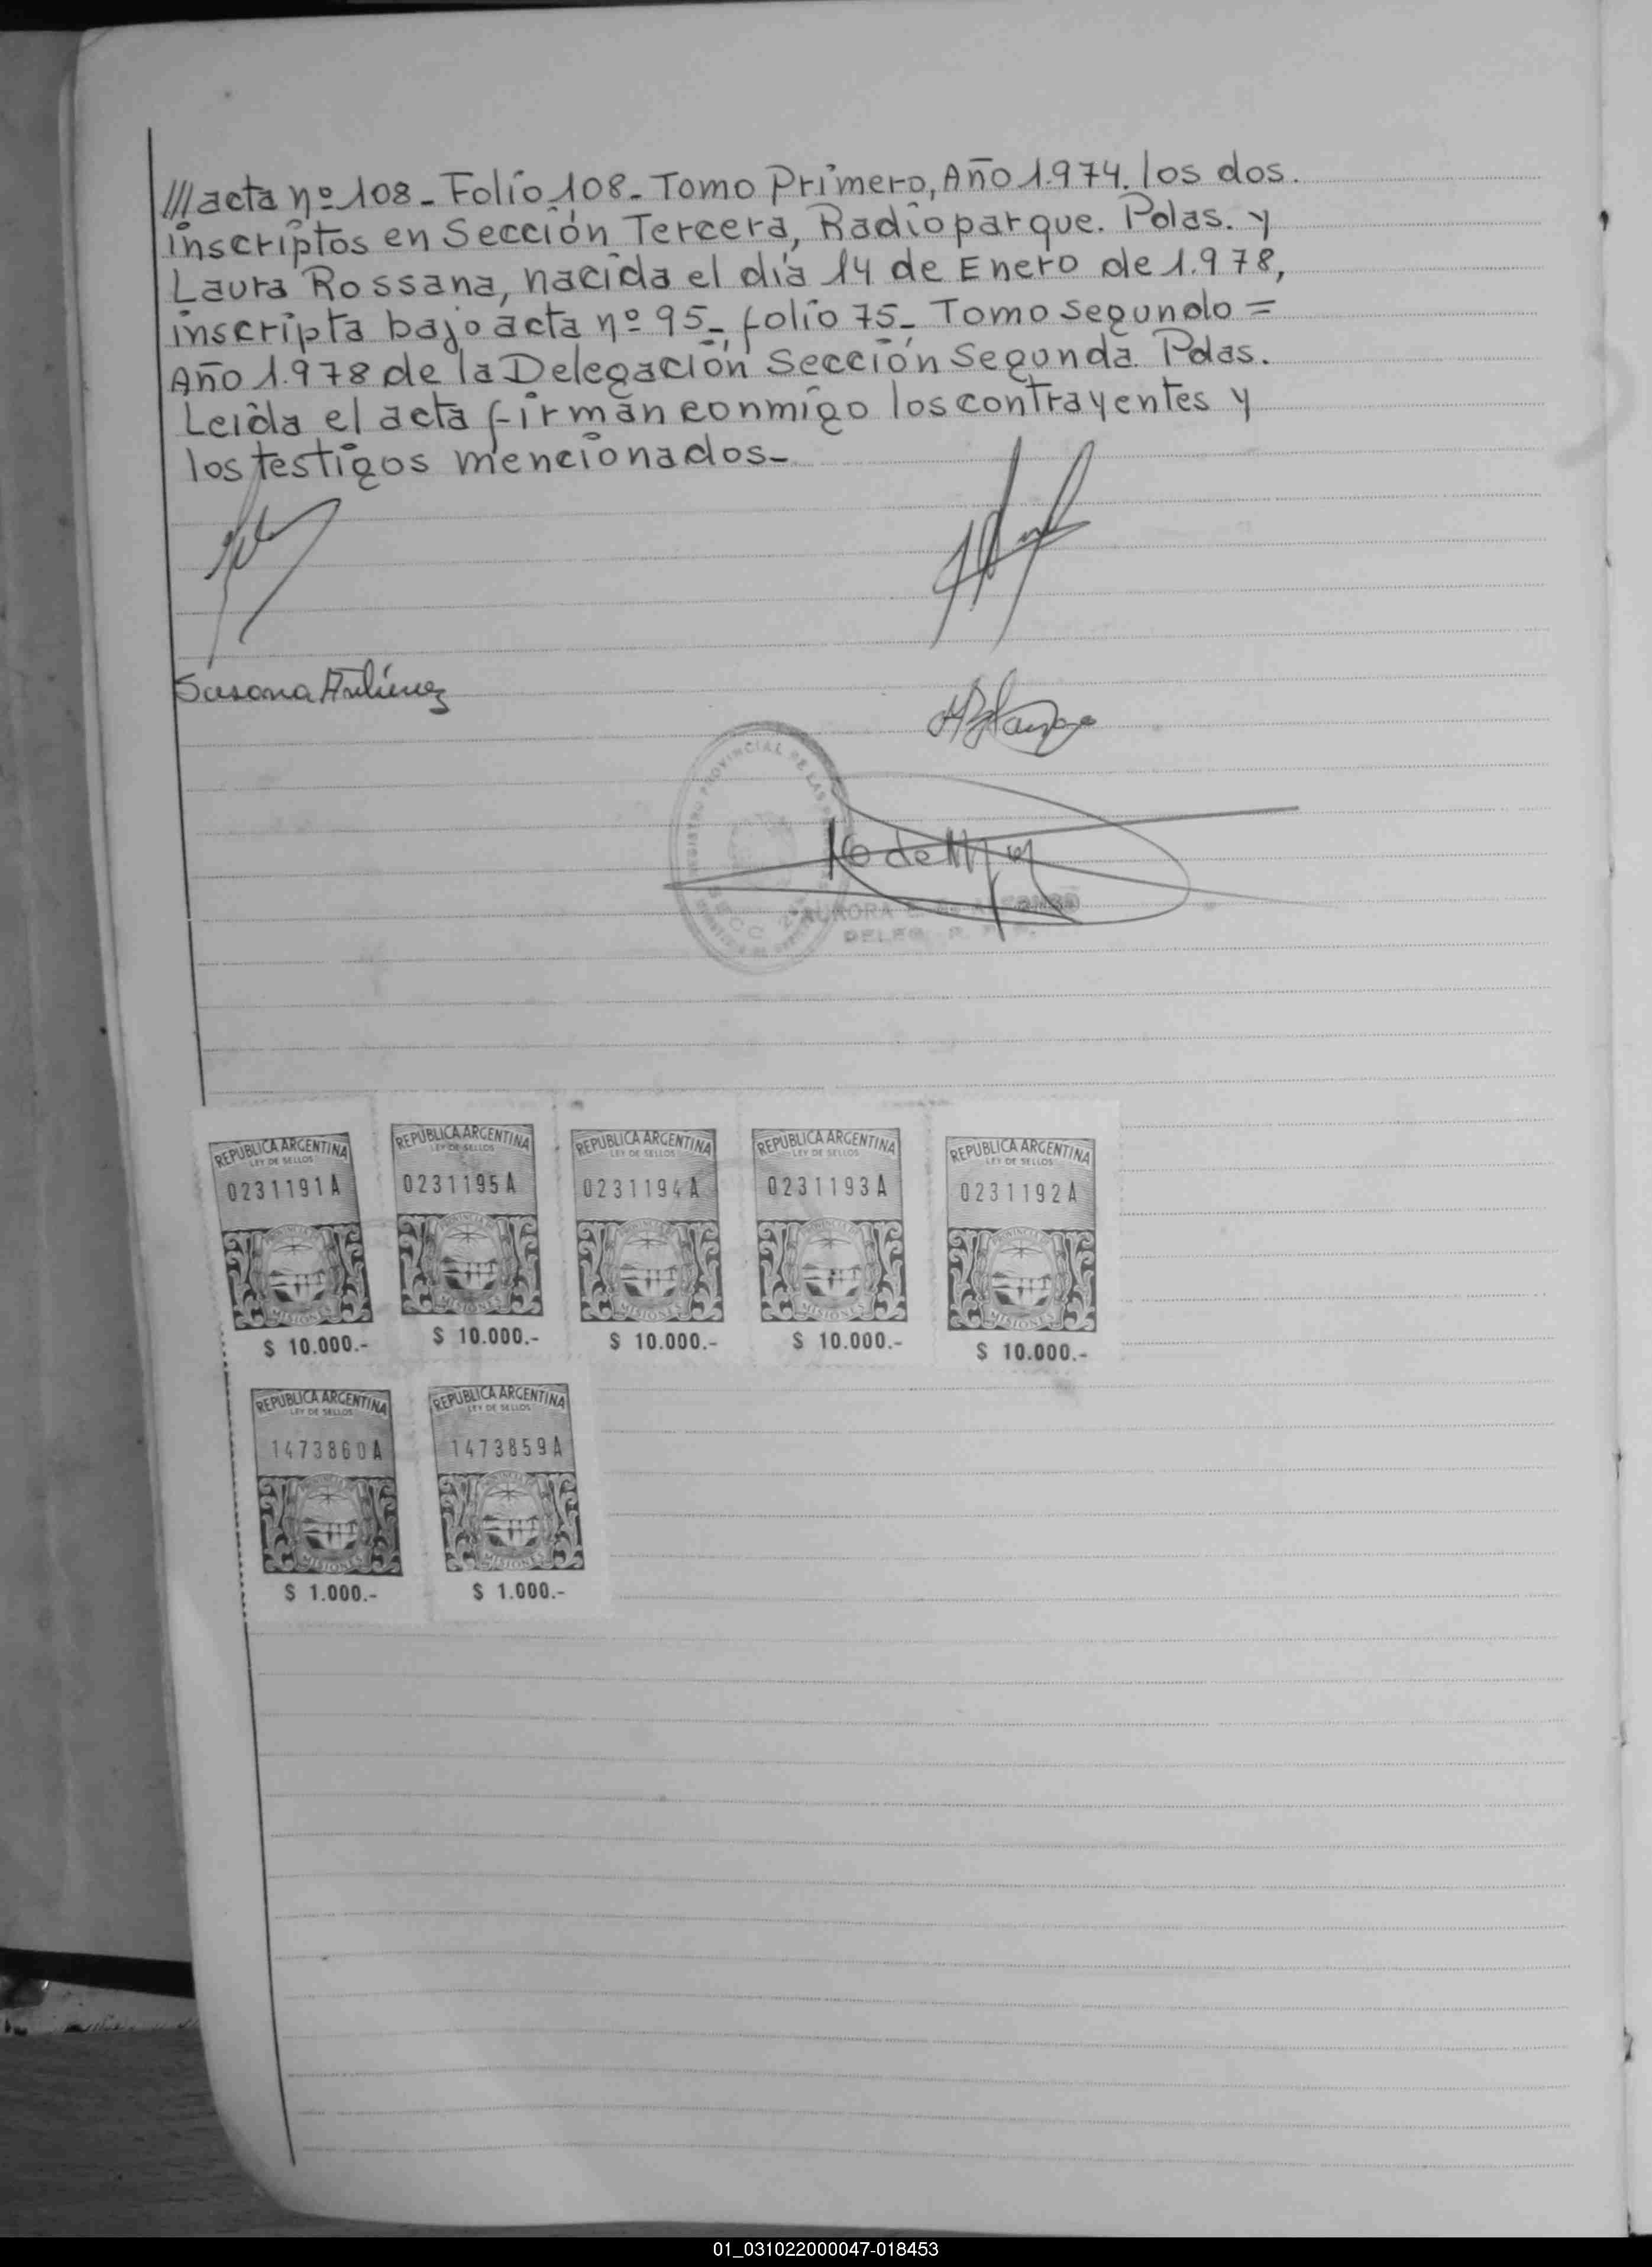 /// acta nº 108 - Folio 108 - Tomo Primero, Año 1.974. los dos.
inscriptos en Sección Tercera, Radioparque. Pdas. y
Laura Rossana, nacida el día 14 de Enero de 1.978,
inscripta bajo acta nº 95 - folio 75 - Tomo segundo =
Año 1.978 de la Delegación Sección Segunda. Pdas.
Leída el acta firman conmigo los contrayentes y
los testigos mencionados -
Susana
REGISTRO PROVINCIAL DE LAS
SECC 2
AURORA
DELEG. R. P. P.
REPUBLICA ARGENTINA REPUBLICA ARGENTINA REPUBLICA ARGENTINA REPUBLICA ARGENTINA REPUBLICA ARGENTINA
LEY DE SELLOS LEY DE SELLOS LEY DE SELLOS LEY DE SELLOS LEY DE SELLOS
0231191A 0231195A 0231194A 0231193A 0231192A
PROVINCIA DE PROVINCIA DE PROVINCIA DE PROVINCIA DE PROVINCIA DE
MISIONES MISIONES MISIONES MISIONES MISIONES
$ 10.000.- $ 10.000.- $ 10.000.- $ 10.000.- $ 10.000.-
REPUBLICA ARGENTINA REPUBLICA ARGENTINA
LEY DE SELLOS LEY DE SELLOS
1473860A 1473859A
PROVINCIA DE PROVINCIA DE
MISIONES MISIONES
$ 1.000.- $ 1.000.-
01_031022000047-018453